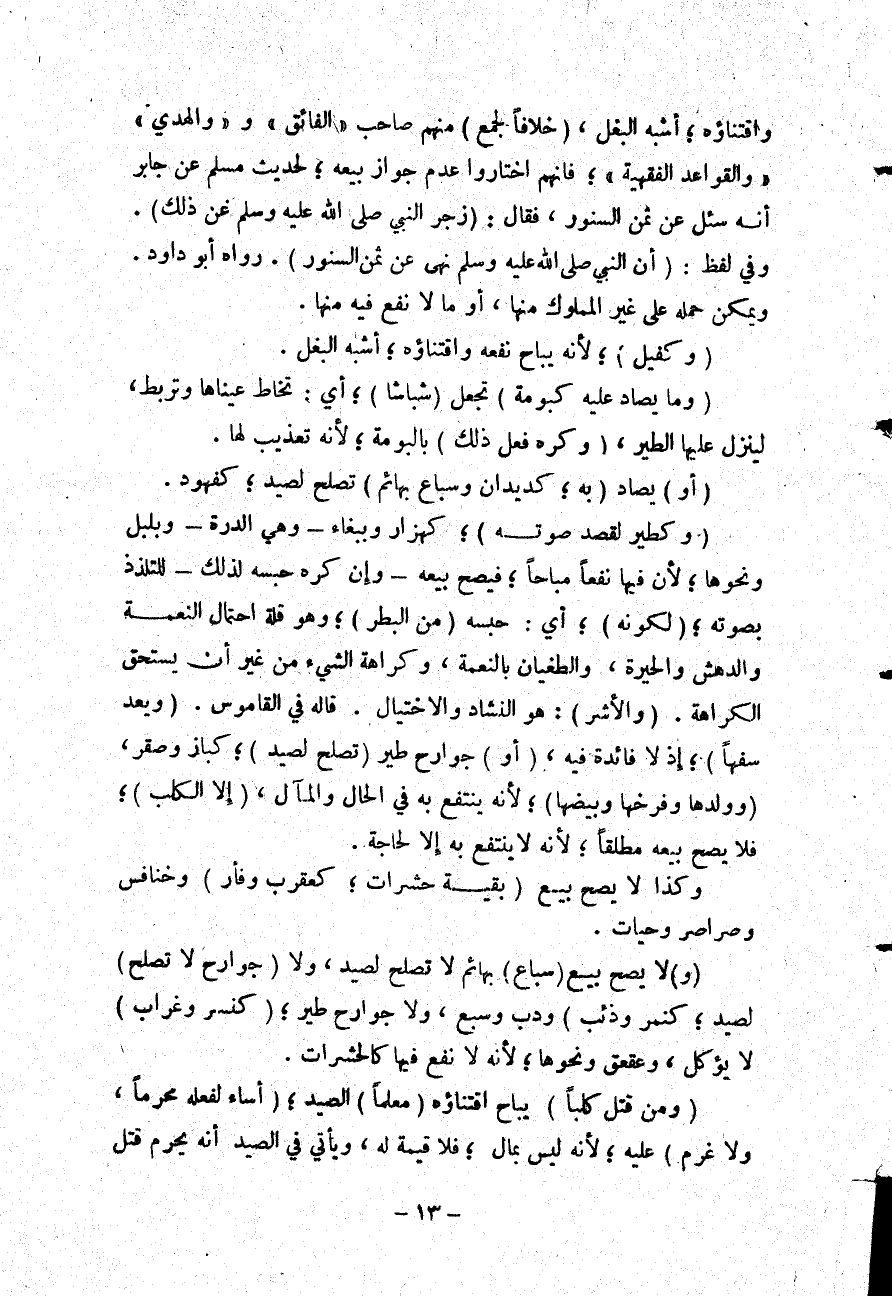 واقتناؤه ؛ أشبه البغل ، ( خلافاً لجمع ) منهم صاحب « الفائق » و « والهدي »
« والقواعد الفقهية » ؛ فانهم اختاروا عدم جواز بيعه ؛ لحديث مسلم عن جابر
أنـه سئل عن ثمن السنور ، فقال : (زجر النبي صلى الله عليه وسلم عن ذلك) .
وفي لفظ : ( أن النبي صلى الله عليه وسلم نهى عن ثمن السنور ) . رواه أبو داود .
ويمكن حمله على غير المملوك منها ، أو ما لا نفع فيه منها .
( وكفيل ) ؛ لأنه يباح نفعه واقتناؤه ؛ أشبه البغل .
( وما يصاد عليه كبومة ) تجعل (شباشا ) ؛ أي : تخاط عيناها وتربط ،
لينزل عليها الطير ، ( وكره فعل ذلك ) بالبومة ؛ لأنه تعذيب لها .
( أو ) يصاد ( به ؛ كديدان وسباع بهائم ) تصلح لصيد ؛ كفهود .
( وكطير لقصد صوتـــه ) ؛ كهزار وببغاء – وهي الدرة – وبلبل
ونحوها ؛ لأن فيها نفعاً مباحاً ؛ فيصح بيعه – وإن كره حبسه لذلك – للتلذذ
بصوته ؛ ( لكونه ) ؛ أي : حبسه ( من البطر ) ؛ وهو قلة احتمال النعمـــة
والدهش والحيرة ، والطغيان بالنعمة ، وكراهة الشيء من غير أن يستحق
الكراهة . ( والأشر ) : هو النشاد والاختيال . قاله في القاموس . ( ويعد
سفهاً ) ؛ إذ لا فائدة فيه ، ( أو ) جوارح طير ( تصلح لصيد ) ؛ كباز وصقر ،
(وولدها وفرخها وبيضها) ؛ لأنه ينتفع به في الحال والمآل ، ( إلا الكلب ) ؛
فلا يصح بيعه مطلقاً ؛ لأنه لا ينتفع به إلا لحاجة .
وكذا لا يصح بيـع ( بقيـــة حشرات ؛ كعقرب وفأر ) وخنافس
وصراصر وحيات .
(و) لا يصح بيـع (سباع) بهائم لا تصلح لصيد ، ولا ( جوارح لا تصلح )
لصيد ؛ كنمر وذئب ) ودب وسبع ، ولا جوارح طير ؛ ( كنسر وغراب )
لا يؤكل ، وعقعق ونحوها ؛ لأنه لا نفع فيها كالحشرات .
( ومن قتل كلباً ) يباح اقتناؤه ( معلماً ) الصيد ؛ ( أساء لفعله محرماً ،
ولا غرم ) عليه ؛ لأنه ليس بمال ؛ فلا قيمة له ، ويأتي في الصيد أنه يحرم قتل
– ١٣ –